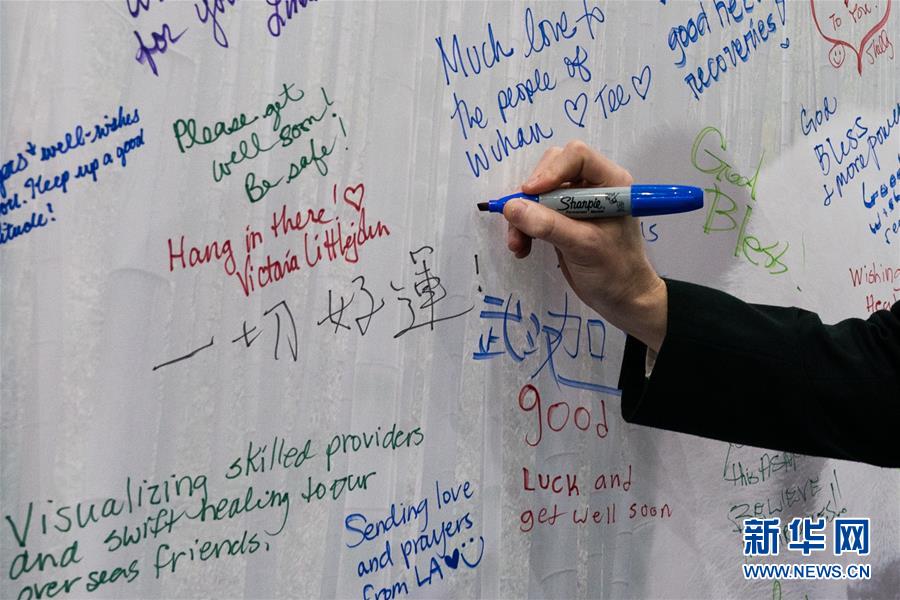 for you
Much love to
the people of
Wuhan ♡ Tee ♡
good
recoveries!
To You!
Please get
well soon!
Be safe!
well-wishes
you. Keep up a good
God
Bless
& more power
God
Bless!
Hang in there! ♡
Victoria Littlejohn
Sharpie
Wishing
一切好運!
武汉加
good
Luck and
get well soon
Visualizing skilled providers
and swift healing to our
overseas friends.
Sending love
and prayers
from LA
this ASAP
BELIEVE!!
新华网
WWW.NEWS.CN